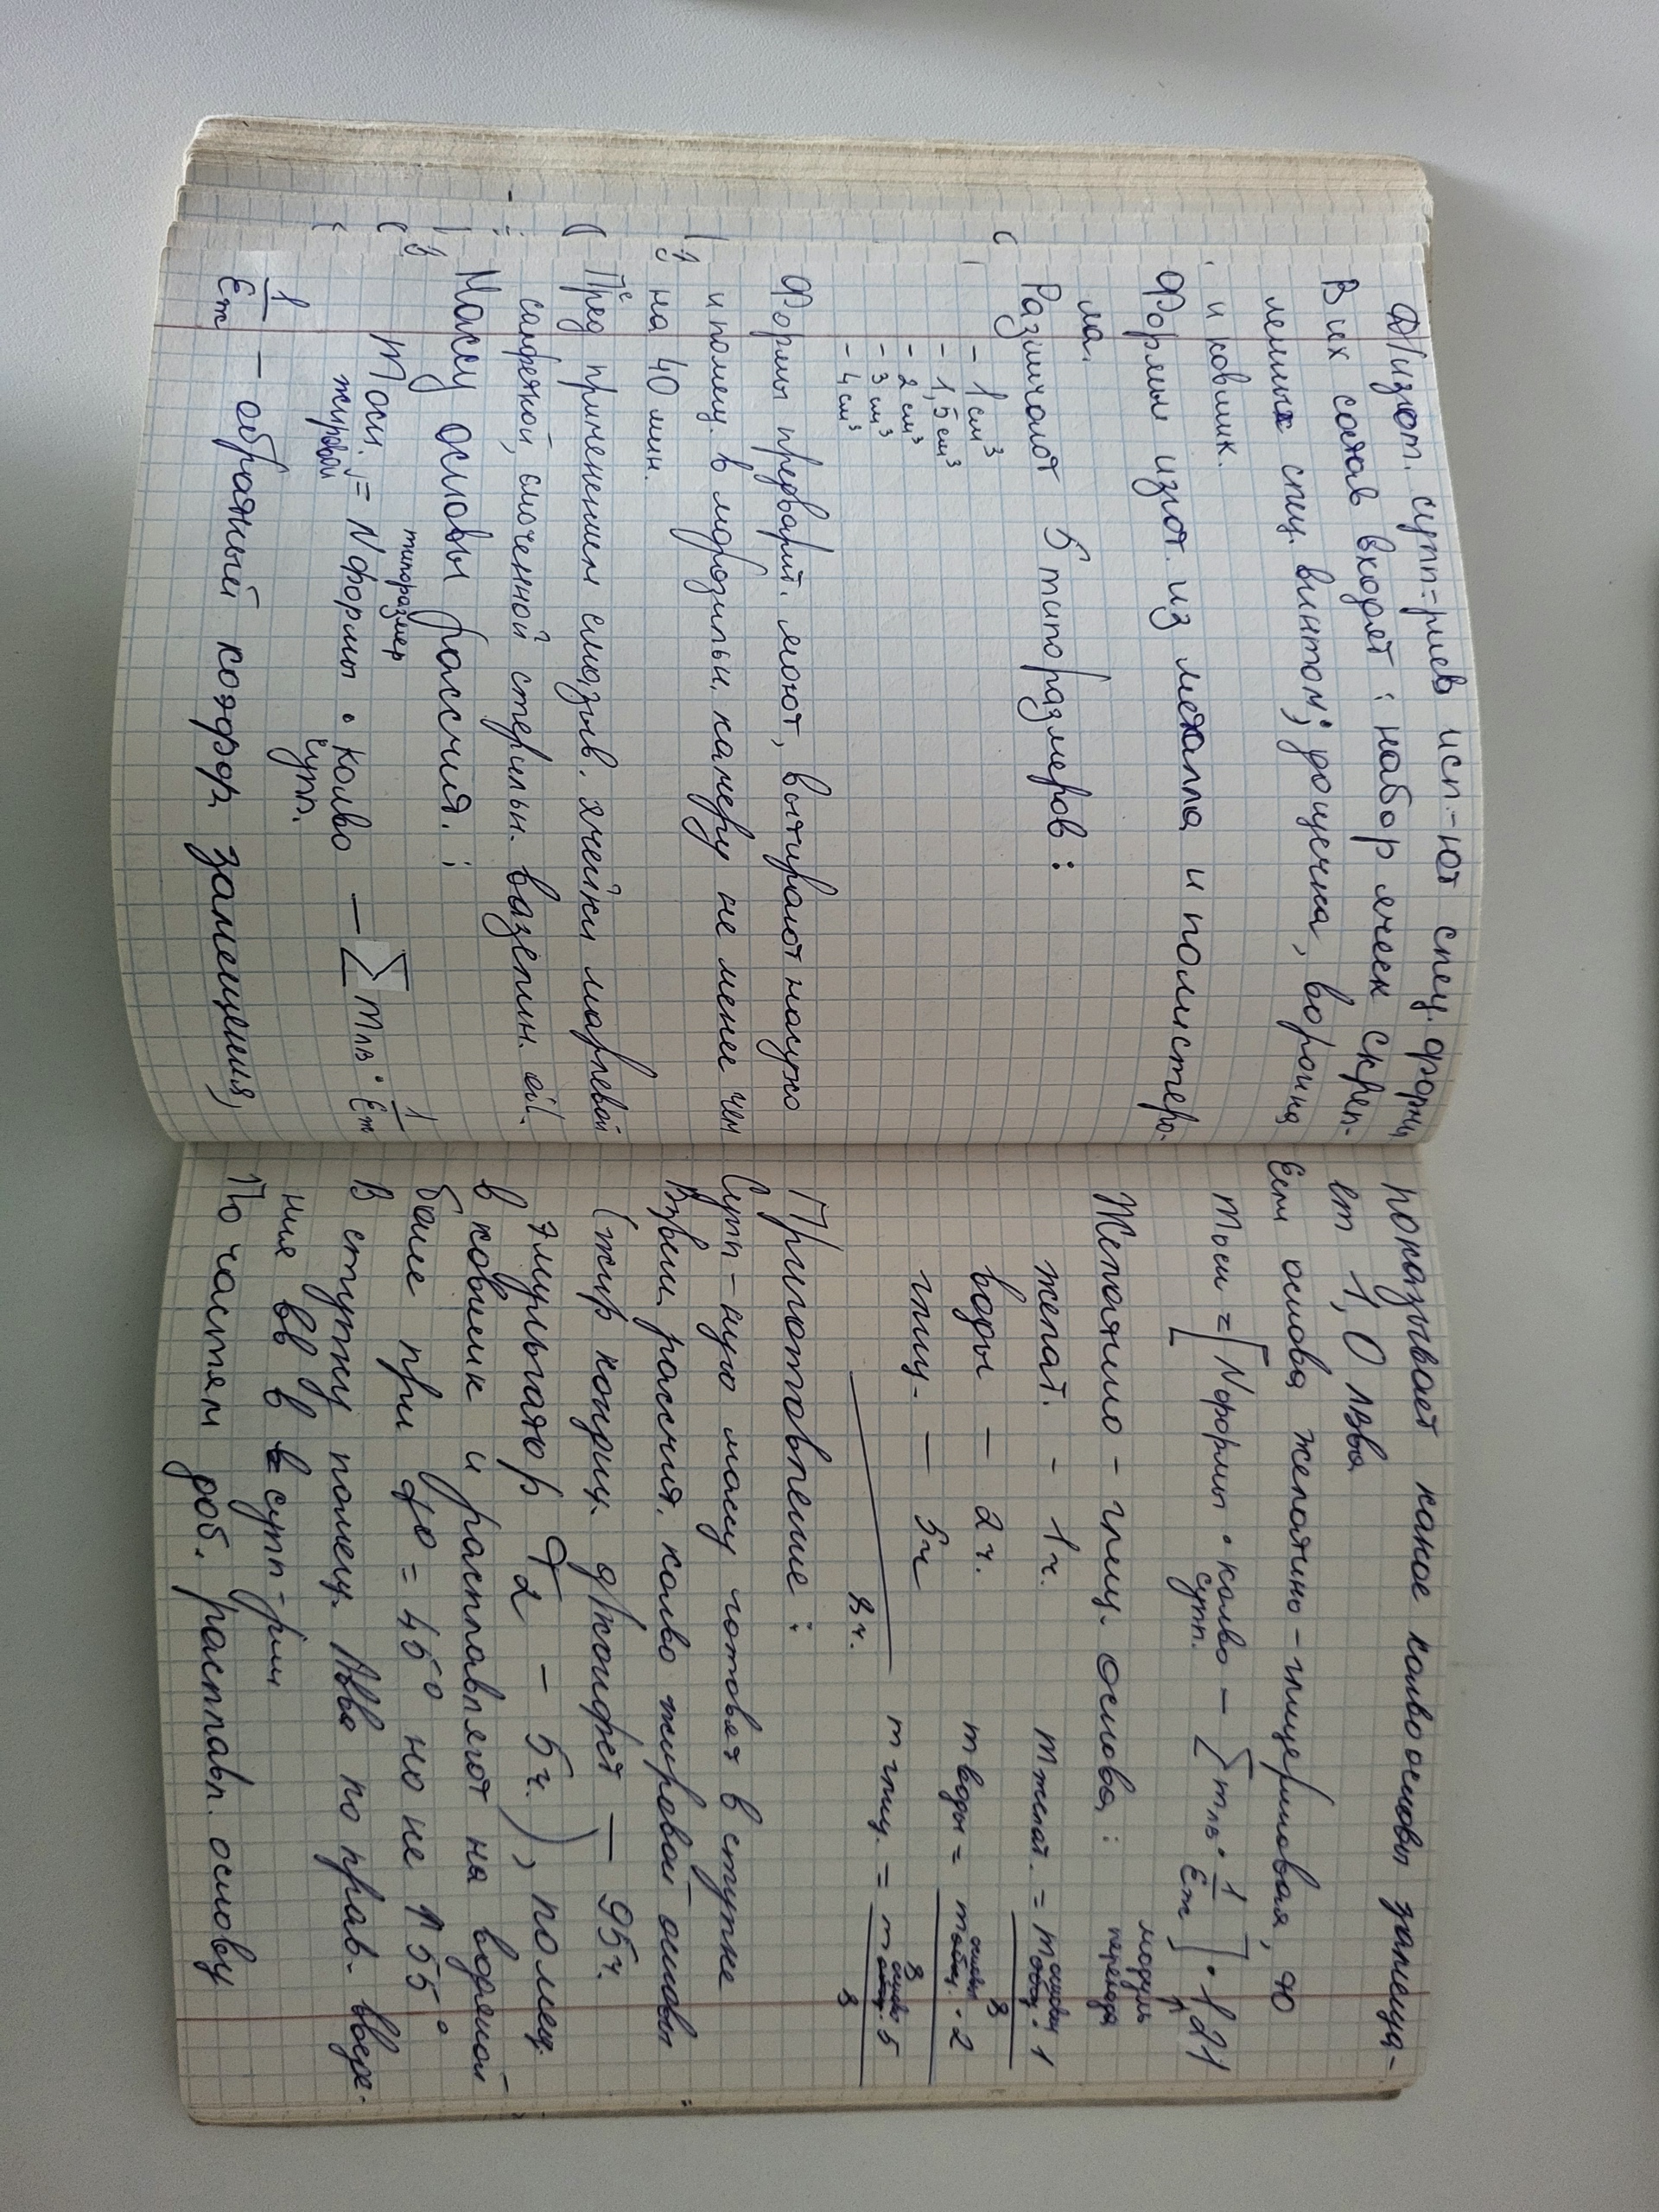 Д/изгот. супп-риев исп-ют спец. формы
В их состав входят: набор ячеек скреп-
ленных спец. винтом; дощечка, воронка
и ковшик.
Формы изгот. из металла и полистеро-
ла.
Различают 5 типоразмеров:
- 1 см³
- 1,5 см³
- 2 см³
- 3 см³
- 4 см³
Формы предварит. моют, вытирают насухо
и помещ. в морозильн. камеру не менее чем
на 40 мин.
Пред применением смазыв. ячейки марлевой
салфеткой, смоченной стерильн. вазелин. oil.
Массу основы рассчит.:
типоразмер
m осн. = N формы · кол-во — Σ m лв · 1/Eж
жировой супп.
1/Eж — обратный коэфф замещения,
показывает какое колво основы замеща-
ет 1,0 лвва
Если основа желатино-глицериновая, то
m осн = [N формы · кол-во — Σ m лв · 1/Eж] · 1,21
супп.
модуль
перехода
Желатино-глиц. основа:
желат. - 1 ч. m желат. = m основы · 1 / 8
воды - 2 ч. m воды = m основы · 2 / 8
глиц. - 5 ч m глиц. = m основы · 5 / 8
8 ч.
Приготовление:
Супп-ную массу готовят в ступке
Взвеш. рассчит. колво жировой основы
(жир кондиц. д/конфет — 95 ч.
эмульгатор Т2 - 5 ч.), помещ.
в ковшик и расплавляют на водяной
бане при t° = 45° но не ↑ 55°
В ступку помещ. лвва по прав. введе-
ния вв в супп-рии
По частям доб. расплавл. основу